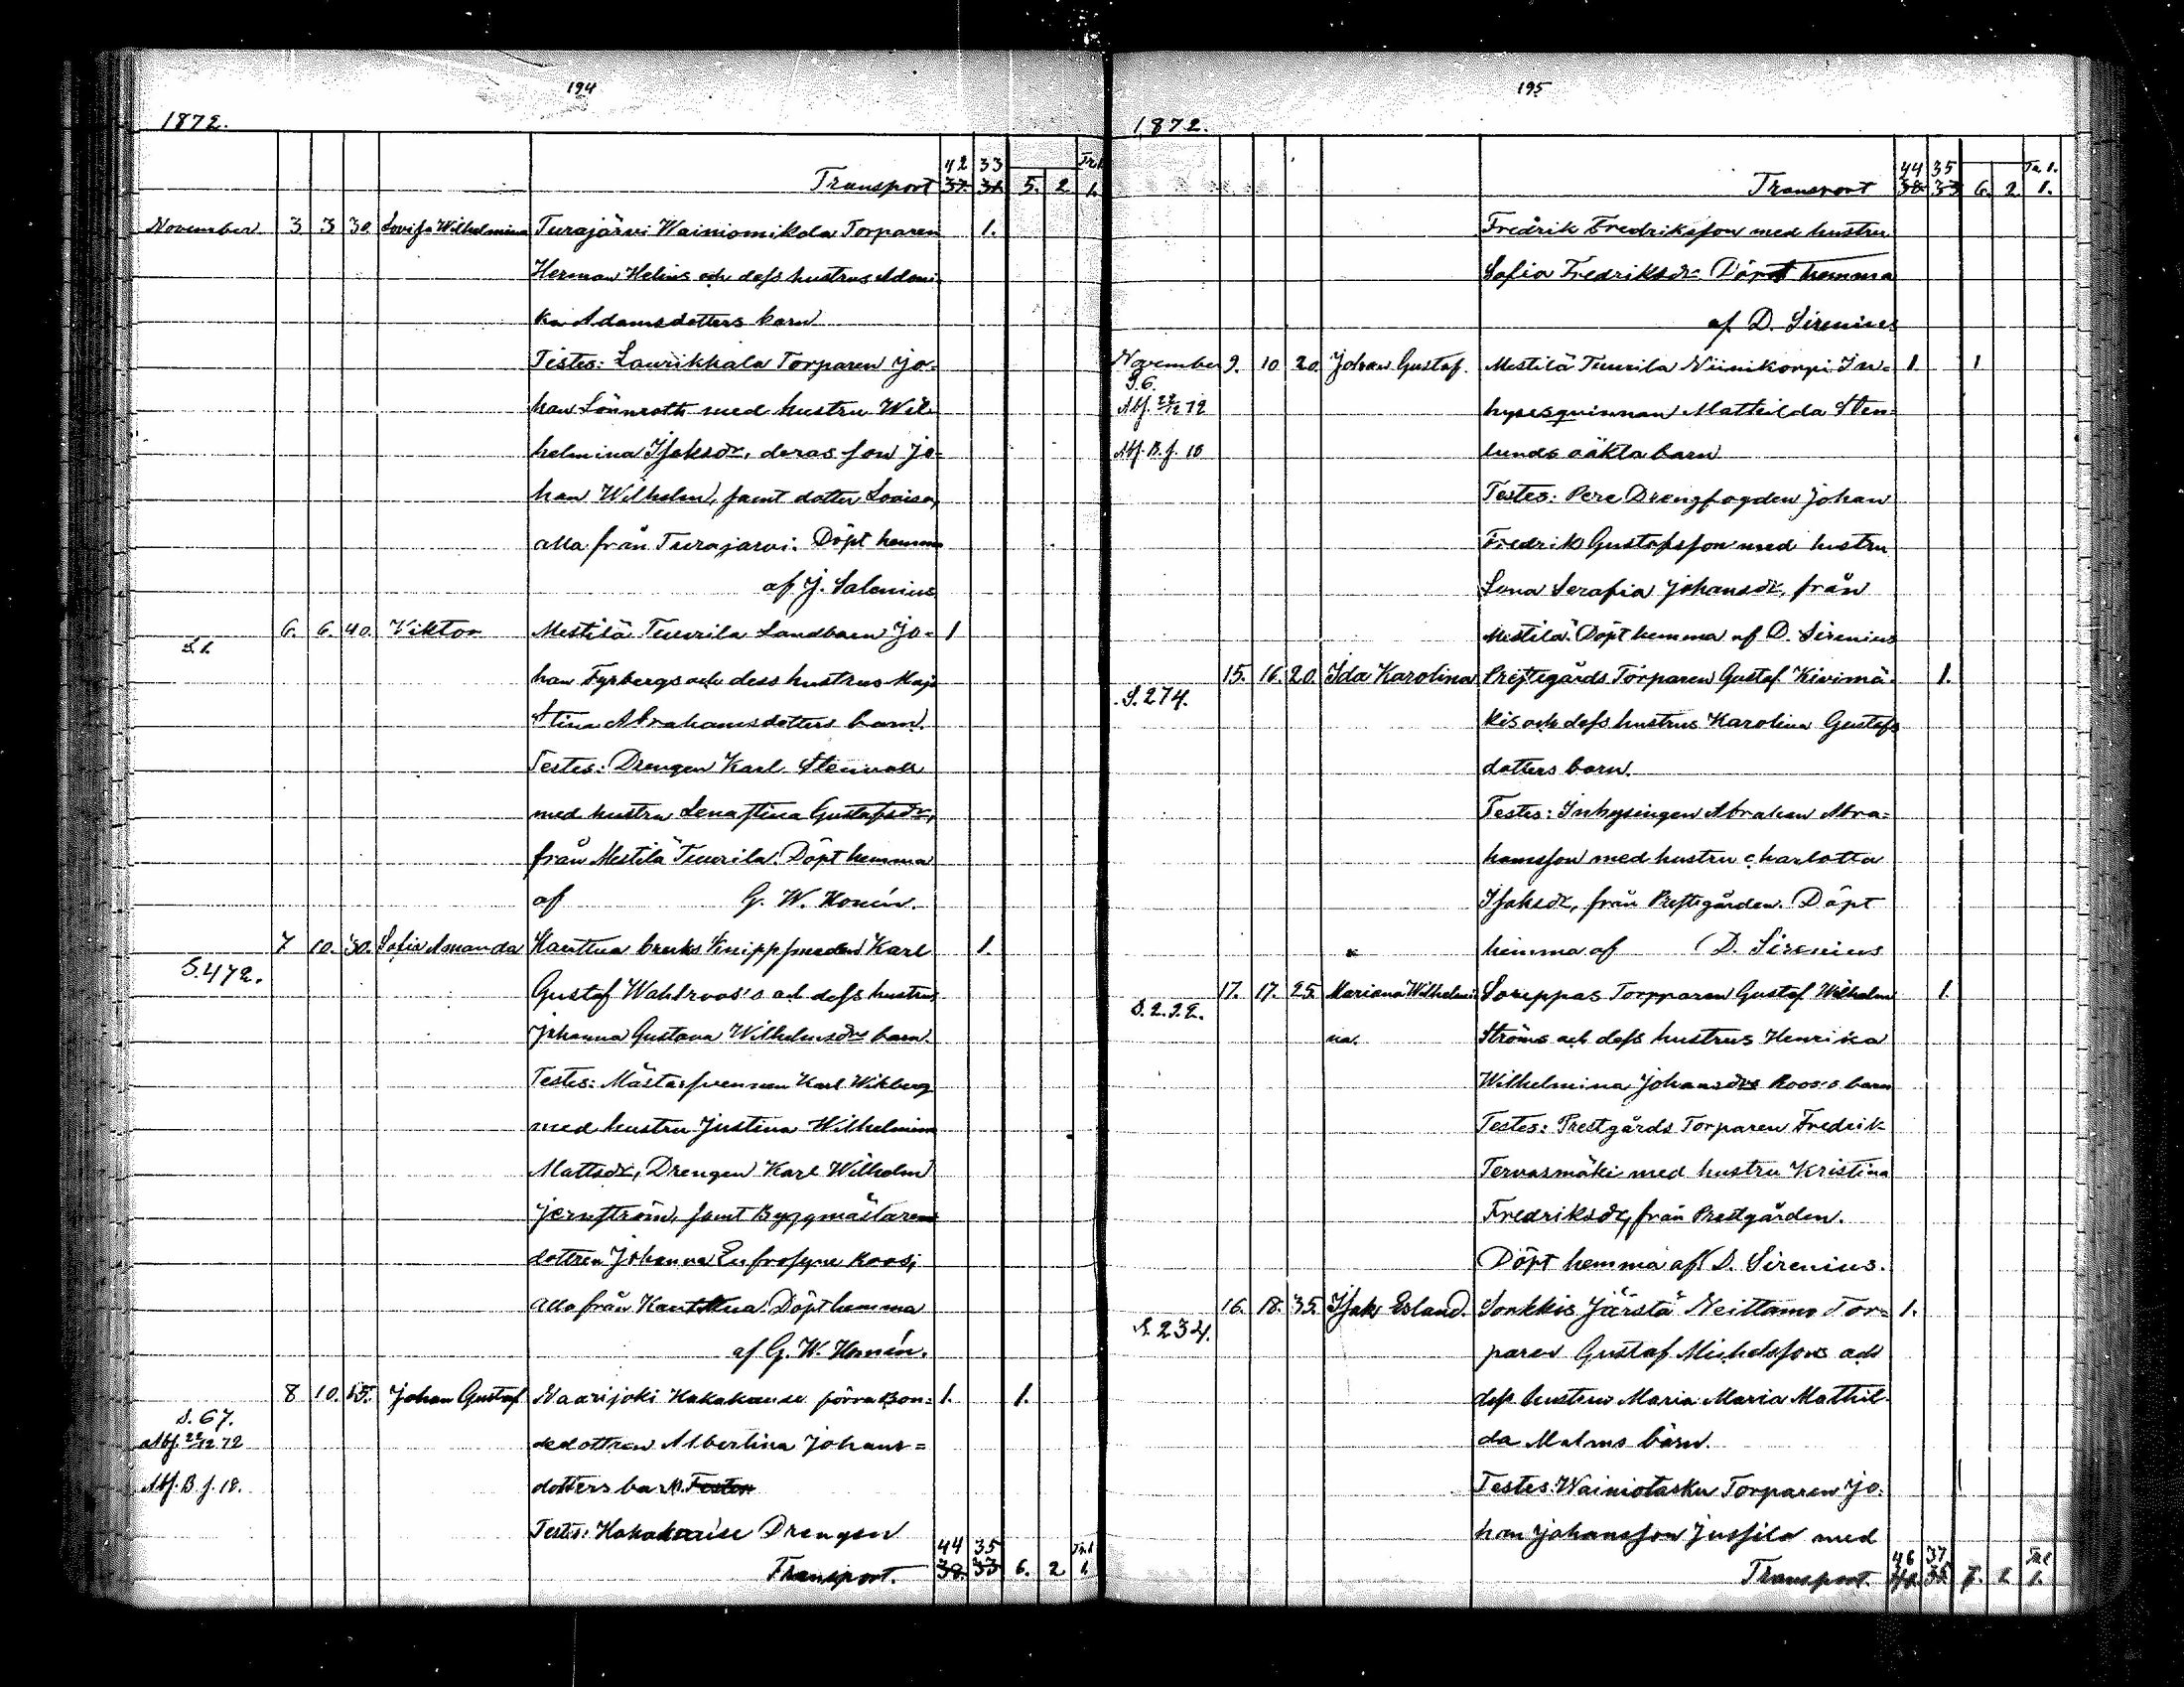 194
1872.
Transport 42 33 5. 2. Tr. 1.
37 31 1.
November 3 3 30. Lovisa Wilhelmina Turajärvi Wainiomikola Torparen 1.
Herman Helins och dess hustrus Adami-
ka Adamsdotters barn
Testes: Laurikkala Torparen Jo-
han Lönnroth med hustru Wil-
helmina Isaksdr, deras son Jo-
han Wilhelm, samt dotter Lovisa,
alla från Turajärvi. Döpt hemma
af J. Salenius
6. 6. 40. Viktor Mestilä Tuurila Landbonn Jo- 1
S. 1.
han Fyrbergs och dess hustrus Maja
Stina Abrahamsdotters barn.
Testes: Drengen Karl Stenvall
med hustru Lenastina Gustafsdr,
från Mestilä Tuurila. Döpt hemma
af G. W. Konin.
7 10. 30. Sofia Amanda Kauttua bruks Knippsmeden Karl 1.
S. 472.
Gustaf Wahlroos's och dess hustrus
Johanna Gustava Wilhelmsdrs barn.
Testes: Mästarsvennen Karl Wikberg
med hustru Justina Wilhelmina
Mattsdr, Drengen Karl Wilhelm
Jernström, samt Byggmästare
dottren Johanna Eufrosyne Roos;
alla från Kauttua. Döpt hemma
af G. W. Konin.
8 10. 15. Johan Gustaf Naarijoki Kakakause förra Bon- 1. 1.
S. 67.
Abs. 22/12 72
dedottren Albertina Johans=
Abs. B. f. 18.
dotters barn. Testes
Testes: Kakakause Drengen
44 35
Transport. 38 33 6. 2 Tr. 1 1.
195
1872.
44 35 Tr. 1.
Transport 38 33 6. 2. 1.
Fredrik Fredriksson med hustru
Sofia Fredriksdr. Döpt hemma
af D. Sirenius
November 9. 10 20. Johan Gustaf. Mestilä Tuurila Niinikorpi In- 1. 1
S. 6.
Abf. 22/12 72
hysesquinnan Mathilda Sten-
Abf. B. f. 18
lunds oäkta barn
Testes: Pere Drengfogden Johan
Fredrik Gustafsson med hustru
Lena Serafia Johansdr, från
Mestilä. Döpt hemma af D. Sirenius
15. 16. 20. Ida Karolina Prestegårds Torparen Gustaf Kivimä- 1.
S. 274.
kis och dess hustrus Karolina Gustafs
dotters barn.
Testes: Inhysingen Abraham Abra-
hamsson med hustru Charlotta
Isaksdr, från Prestegården. Döpt
hemma af D. Sirenius
17. 17. 25. Mariana Wilhelmi- Soreppas Torpparen Gustaf Wilhelm 1.
S. 292.
na. Ströms och dess hustrus Henrika
Wilhelmina Johansdrs Roos's barn
Testes: Prestgårds Torparen Fredrik
Tervasmäki med hustru Kristina
Fredriksdr, från Prestgården.
Döpt hemma af D. Sirenius.
16. 18. 35. Isak Erland. Sonkkis Järstä Neittamo Tor- 1.
S. 234.
paren Gustaf Michelssons och
dess hustrus Maria Maria Mathil-
da Malms barn.
Testes: Wainiotasku Torparen Jo-
han Johansson Jussila med
46 37 Tr. 1
Transport. 40 35 7. 2 1.